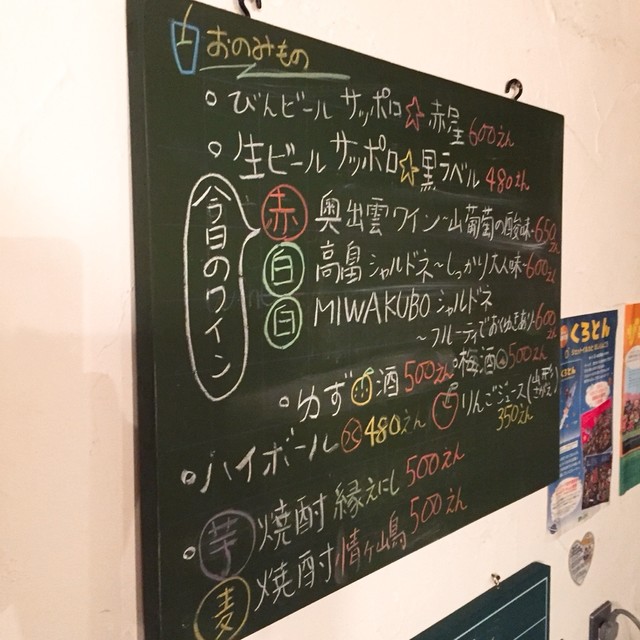 おのみもの
びんビール サッポロ☆赤星 600えん
生ビール サッポロ☆黒ラベル 480えん
今日のワイン
赤 奥出雲ワイン~山葡萄の酸味~650えん
白 高畠シャルドネ~しっかり大人味~600えん
白 MIWAKUBO シャルドネ
~フルーティでおくゆきあり~600えん
ゆず酒 500えん 梅酒 500えん
ハイボール 480えん りんごジュース(山形
350えん
芋 焼酎 縁えにし 500えん
麦 焼酎 情ヶ嶋 500えん
くろとん